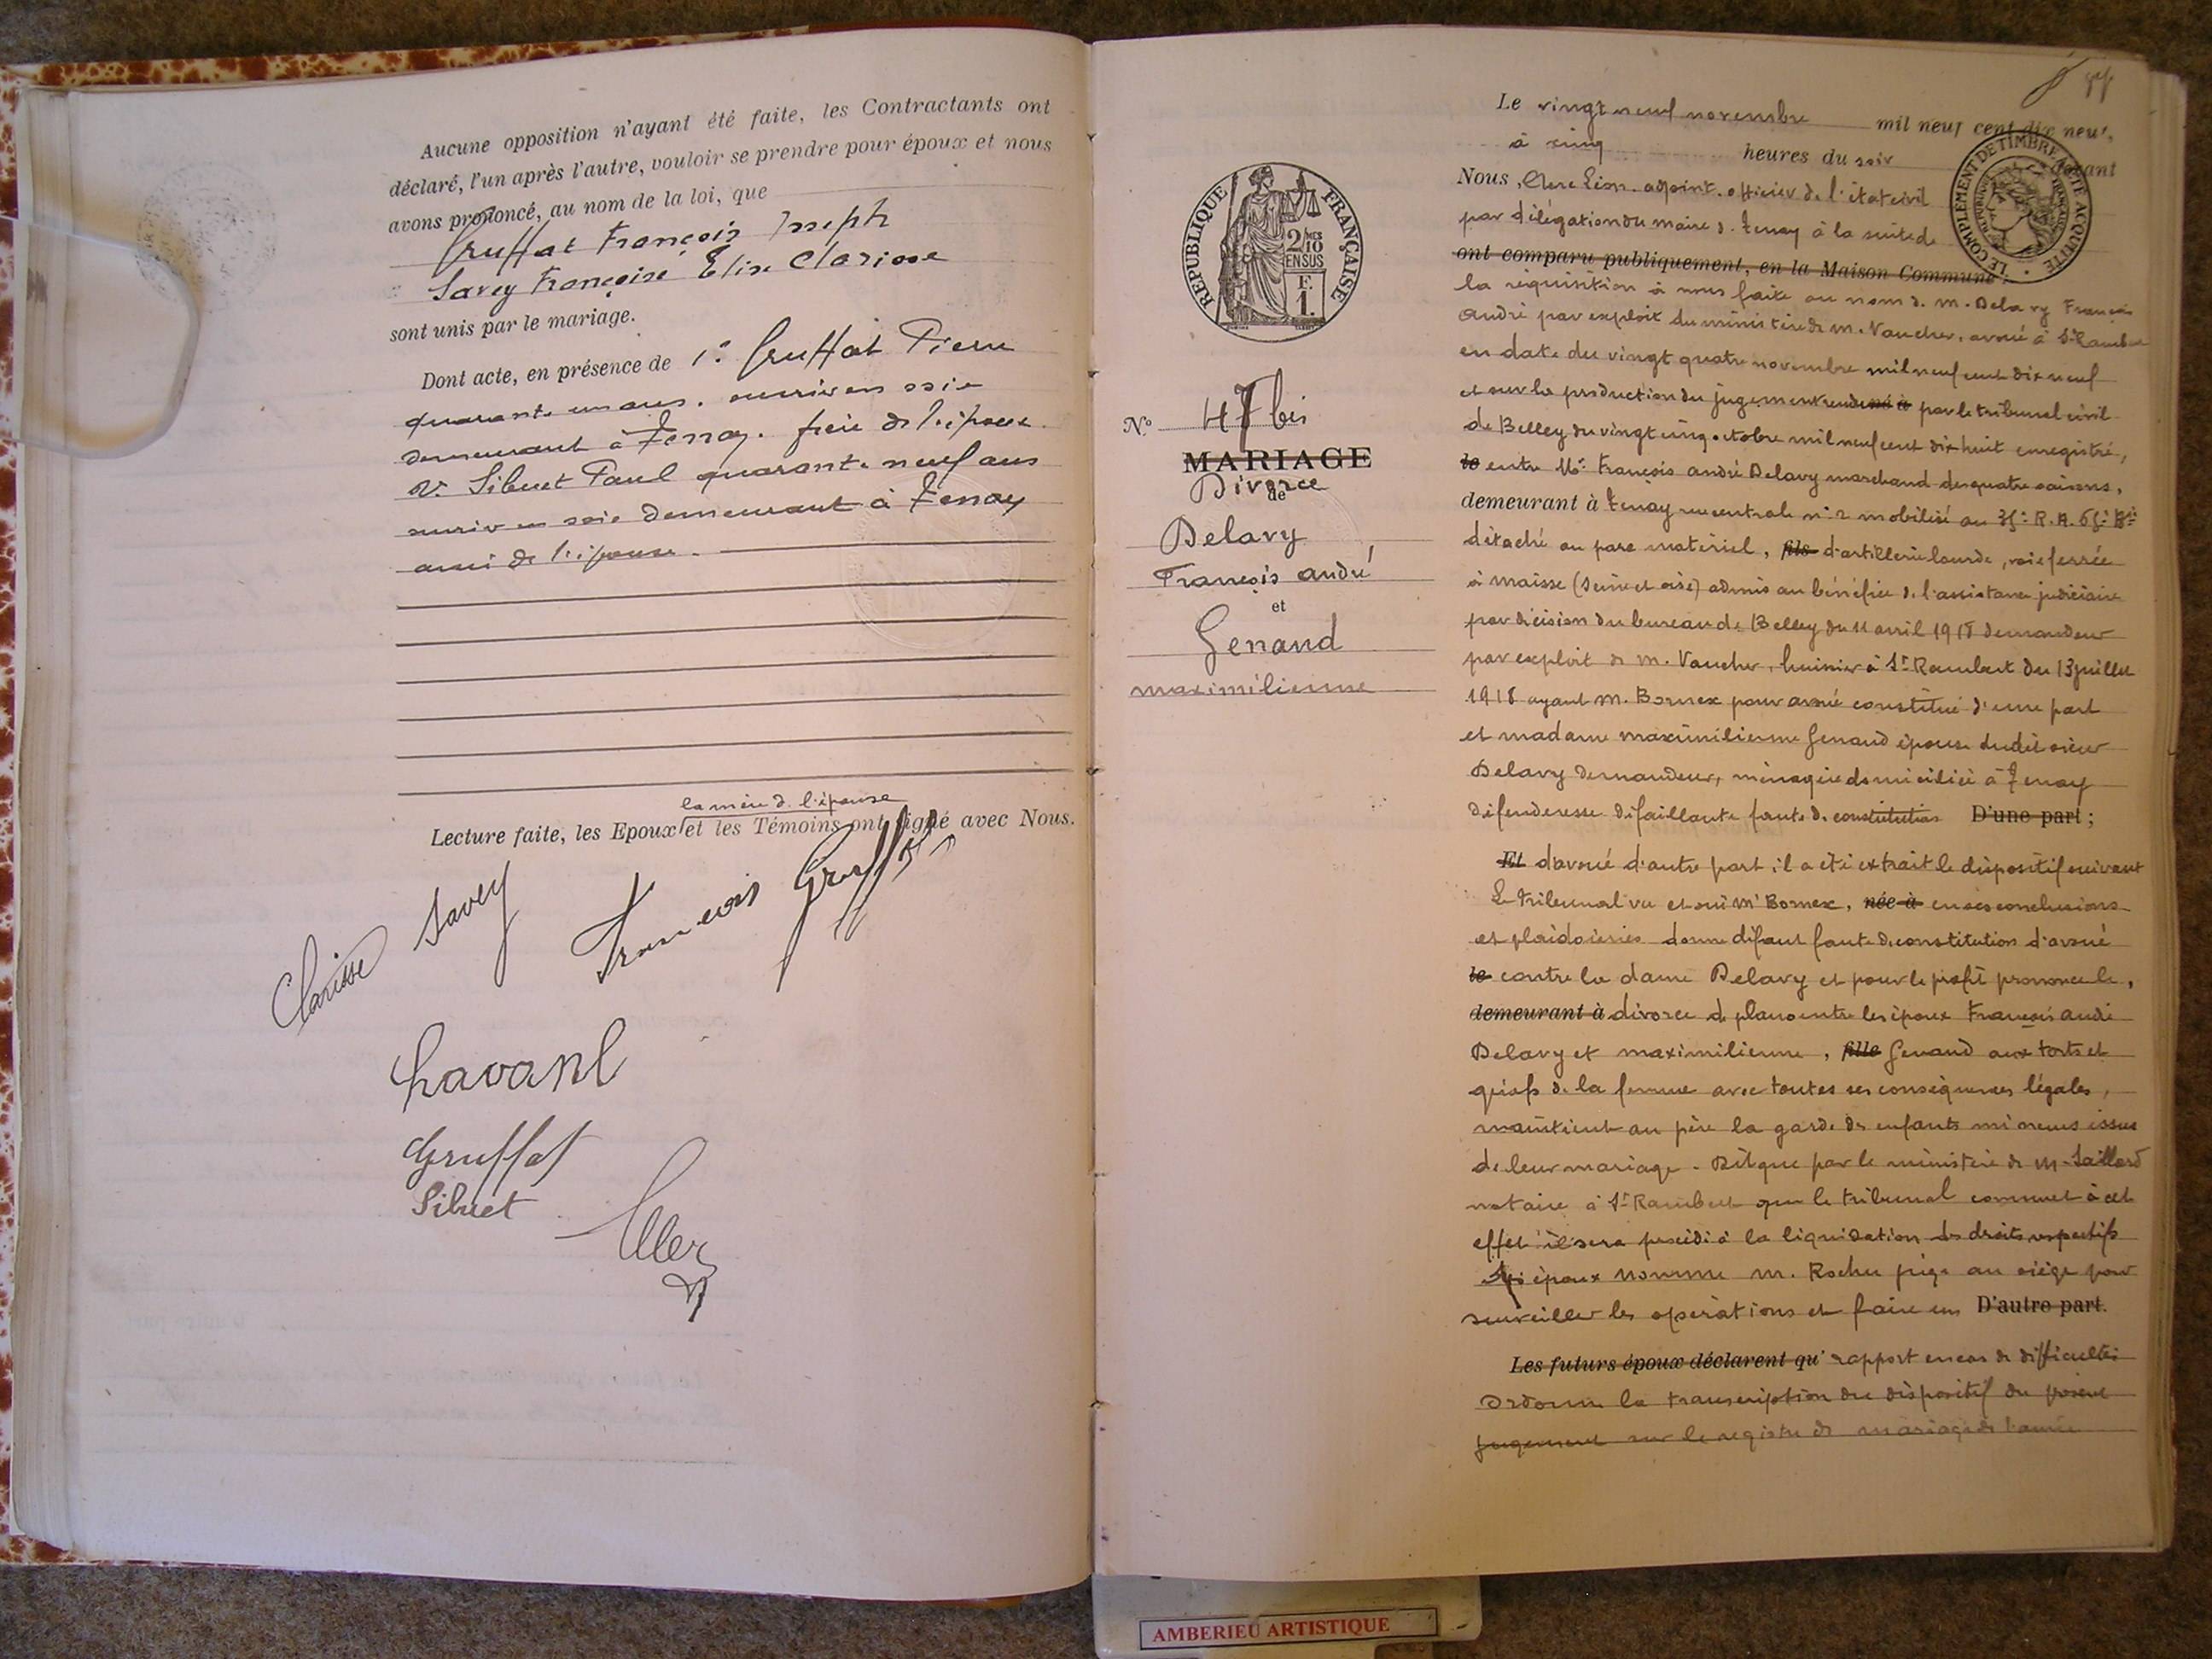 Aucune opposition n'ayant été faite, les Contractants ont
déclaré, l'un après l'autre, vouloir se prendre pour époux et nous
avons prononcé, au nom de la loi, que
Gruffat François Joseph
Savey Françoise Élise Clarisse
sont unis par le mariage.
Dont acte, en présence de 1° Gruffat Pierre
quarante un ans, ouvrier en soie
demeurant à Tenay. frère de l'époux
2° Sibuet Paul quarante neuf ans
ouvrier en soie demeurant à Tenay
ami de l'épouse
la mère de l'épouse
Lecture faite, les Epoux et les Témoins ont signé avec Nous.
Clarisse Savey
François Gruffat
Savant
Gruffat
Sibuet
Clerc
RÉPUBLIQUE FRANÇAISE
2/10MES
EN SUS
F.
1.
N° 47 bis
MARIAGE
Divorce
de
Delavy
François andré
et
Genand
maximilienne
Le vingt neuf novembre mil neuf cent dix neuf,
à cinq heures du soir devant
LE COMPLÉMENT DE TIMBRE A ÉTÉ ACQUITTÉ
Nous, Clerc Léon. adjoint. officier de l'état civil
par délégation du maire d. Tenay à la suite de
ont comparu publiquement, en la Maison Commune.
la réquisition à nous faite au nom d. m. Delavy François
André par exploit du ministère de m. Vaucher. avoué à St Rambert
en date du vingt quatre novembre mil neuf cent dix neuf
et sur la production du jugement rendu né à par le tribunal civil
de Belley du vingt cinq octobre mil neuf cent dix huit enregistré,
le entre Mr François andré Delavy marchand des quatre saisons,
demeurant à Tenay rue centrale n° 2 mobilisé au R. A.
détaché au parc matériel, fils d'artillerie lourde, voie ferrée
à maisse (Seine et oise) admis au bénéfice d. l'assistance judiciaire
par décision du bureau de Belley du 11 avril 1918 demandeur
par exploit de m. Vaucher, huissier à St Rambert du 13 juillet
1918 ayant m. Bornex pour avoué constitué d'une part
et madame maximilienne Genand épouse dudit sieur
Delavy demandeur, ménagère domiciliée à Tenay
défenderesse défaillante faute de constitution D'une part;
Et d'avoué d'autre part il a été extrait le dispositif suivant
Le tribunal vu et ouï Mr Bornex, née à en ses conclusions
et plaidoiries donne défaut faute de constitution d'avoué
le contre la dame Delavy et pour le profit prononce le,
demeurant à divorce de plano entre les époux François André
Delavy et maximilienne, fille Genand aux torts et
griefs de la femme avec toutes ses conséquences légales,
maintient au père la garde des enfants mineurs issus
de leur mariage. Dit que par le ministère de M. Saillard
notaire à St Rambert que le tribunal commet à cet
effet il sera procédé à la liquidation des droits respectifs
époux nomme m. Rocher juge au siège pour
surveiller les opérations et faire un D'autre part.
Les futurs époux déclarent qu' rapport en cas de difficultés
Ordonne la transcription du dispositif du présent
jugement sur le registre de mariage de l'année
AMBERIEU ARTISTIQUE